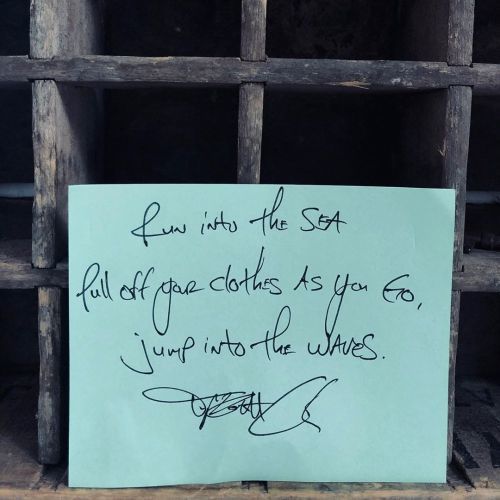 Run into the SEA
pull off your clothes As you Go,
jump into the WAVES.